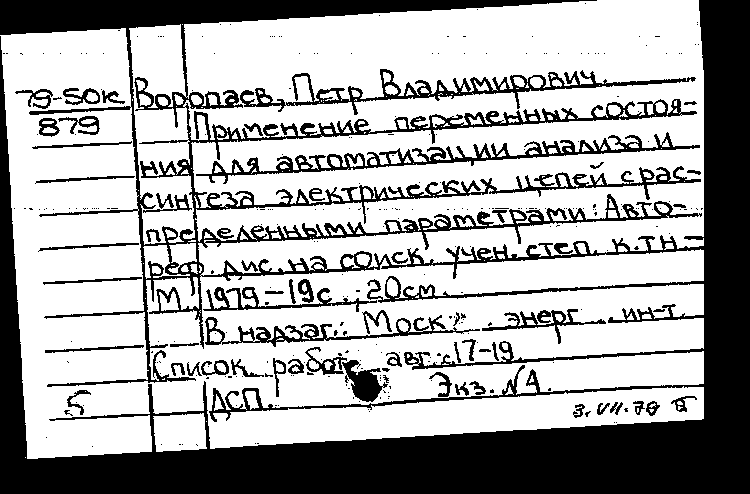 79-50к Воропаев, Петр Владимирович.
879 Применение переменных состоя-
ния для автоматизации анализа и
синтеза электрических цепей с рас-
пределенными параметрами: Авто-
реф. дис. на соиск. учен. степ. к.т.н.-
М., 1979.-19с.; 20см.
В надзаг.: Моск. энерг. ин-т.
Список работ авт.: с.17-19.
5 ДСП. Экз. №
3.VII.79